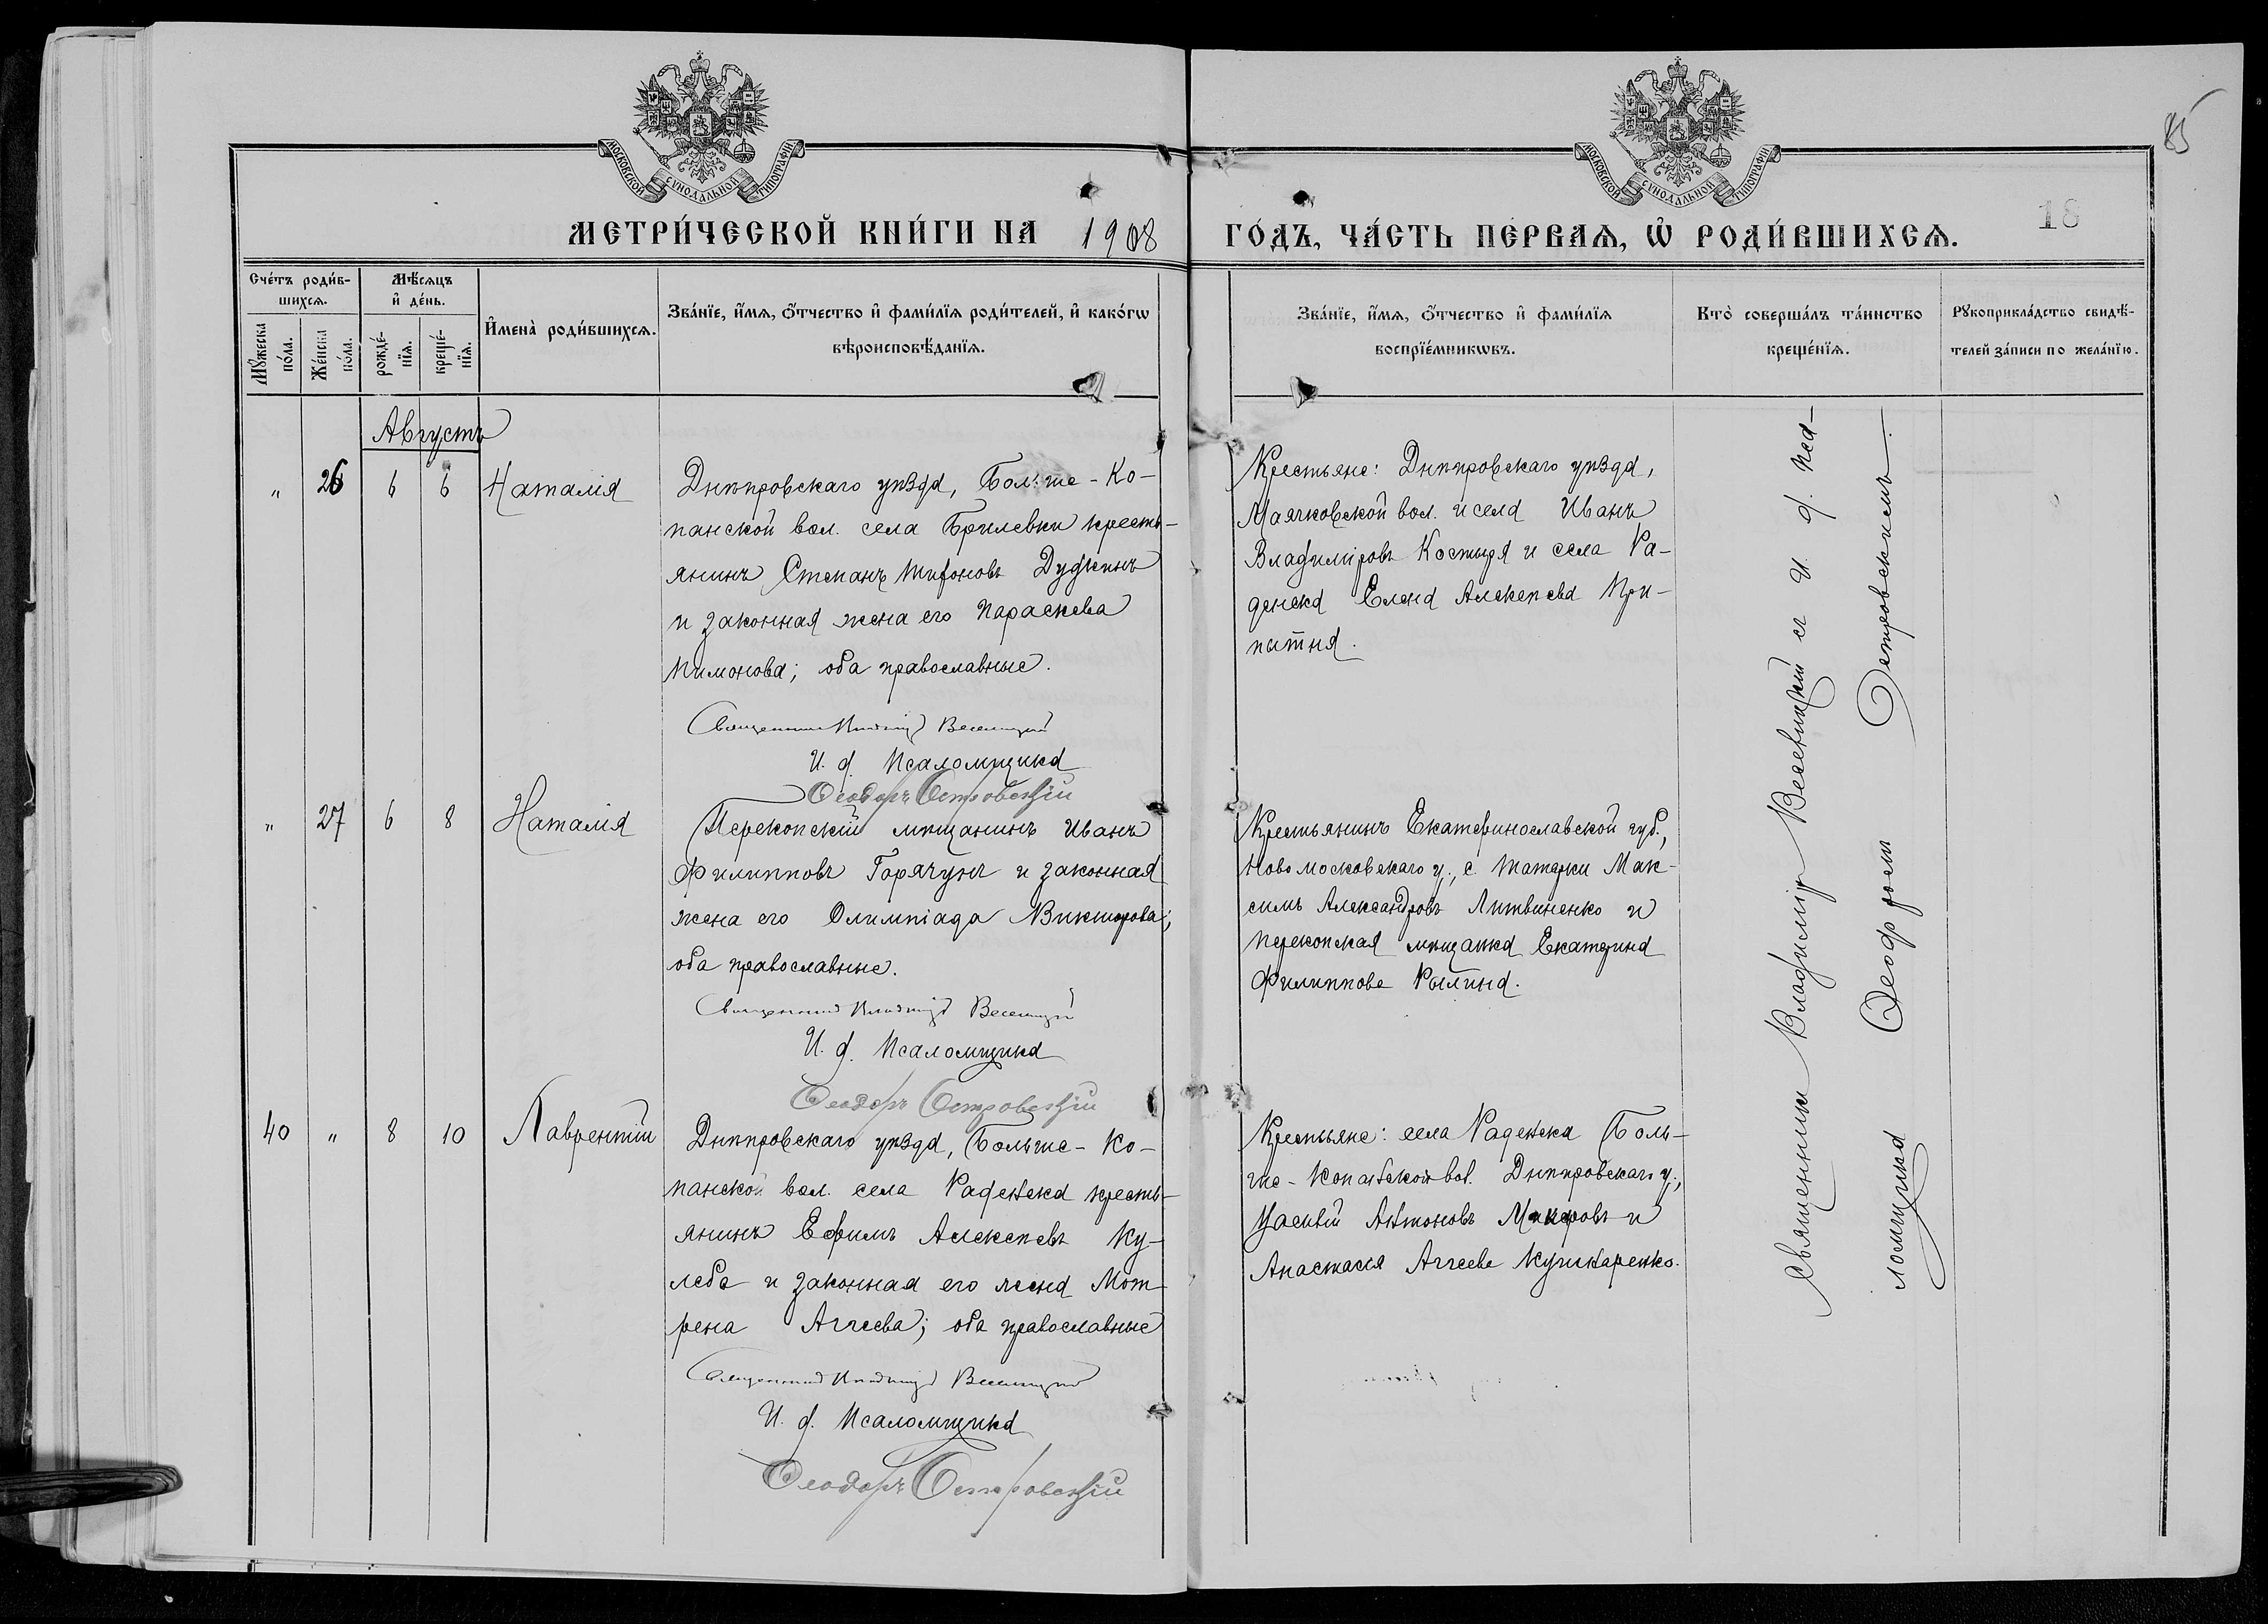 85
18
МОСКОВСКОЙ СѴНОДАЛЬНОЙ ТИПОГРАФІИ
МОСКОВСКОЙ СѴНОДАЛЬНОЙ ТИПОГРАФІИ
МЕТРИ́ЧЕСКОЙ КНИ́ГИ НА 1908 ГО́ДЪ, ЧА́СТЬ ПЕ́РВАѦ, Ѡ҆ РОДИ́ВШИХСѦ.
Сче́тъ роди́в-
шихсѧ.
Мꙋ́жеска
по́ла.
Же́нска
по́ла.
Мѣ́сѧцъ
и҆ де́нь.
рожде́-
нїѧ.
креще́-
нїѧ.
И҆мена̀ роди́вшихсѧ.
Зва́нїе, и҆́мѧ, ѻ҆́тчество и҆ фами́лїѧ роди́телей, и҆ како́гѡ
вѣроисповѣ́данїѧ.
Зва́нїе, и҆́мѧ, ѻ҆́тчество и҆ фами́лїѧ
воспрїе́мникѡвъ.
Кто̀ соверша́лъ та́инство
креще́нїѧ.
Рꙋкоприкла́дство свидѣ́-
телей за́писи по жела́нїю.
Августъ
" 26 6 6 Наталія
Днѣпровскаго уѣзда, Больше-Ко-
панской вол. села Брилевки кресть-
янинъ Степанъ Тифоновъ Дудкинъ
и законная жена его Параскева
Пимонова; оба православные.
Священникъ Владиміръ Веселицкій
И. д. Псаломщика
Ѳеодоръ Островскій
Крестьяне: Днѣпровскаго уѣзда,
Маячковской вол. и села Иванъ
Владиміровъ Костыря и села Ра-
денска Елена Алексѣева При-
пытня.
" 27 6 8 Наталія
Перекопскій мѣщанинъ Иванъ
Филипповъ Горячунъ и законная
жена его Олимпіада Викторова;
оба православные.
Священникъ Владиміръ Веселицкій
И. д. Псаломщика
Ѳеодоръ Островскій
Крестьянинъ Екатеринославской губ.,
Новомосковскаго у., с. Татарки Мак-
симъ Александровъ Литвиненко и
Перекопская мѣщанка Екатерина
Филиппова Рылина.
40 " 8 10 Лаврентій
Днѣпровскаго уѣзда, Больше-Ко-
панской вол. села Раденска кресть-
янинъ Ефимъ Алексѣевъ Ку-
леба и законная его жена Мот-
рена Аггеева; оба православные
Священникъ Владиміръ Веселицкій
И. д. Псаломщика
Ѳеодоръ Островскій
Крестьяне: села Раденска Боль-
ше-Копанской вол. Днѣпровскаго у.,
Антоновъ и
Анастасія Аггеева Кушнаренко.
Священникъ Владиміръ Веселицкій съ и. д. пса-
ломщика Ѳеодоромъ Островскимъ.